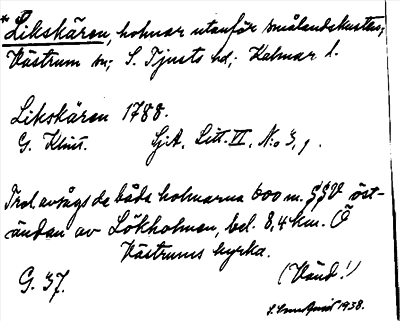 * Likskären, holmar utanför smålandskusten;
Västrum sn; S. Tjusts hd; Kalmar l.
Likskären 1788.
G. Klint. Sjä. Litt. VI, No 3,1.
Trol. avsågs de båda holmarna 600 m. SSV öst-
ändan av Lökholmen, bel. 8,4 km. Ö
Västrums kyrka.
G. 37. (Vänd!)
1938.